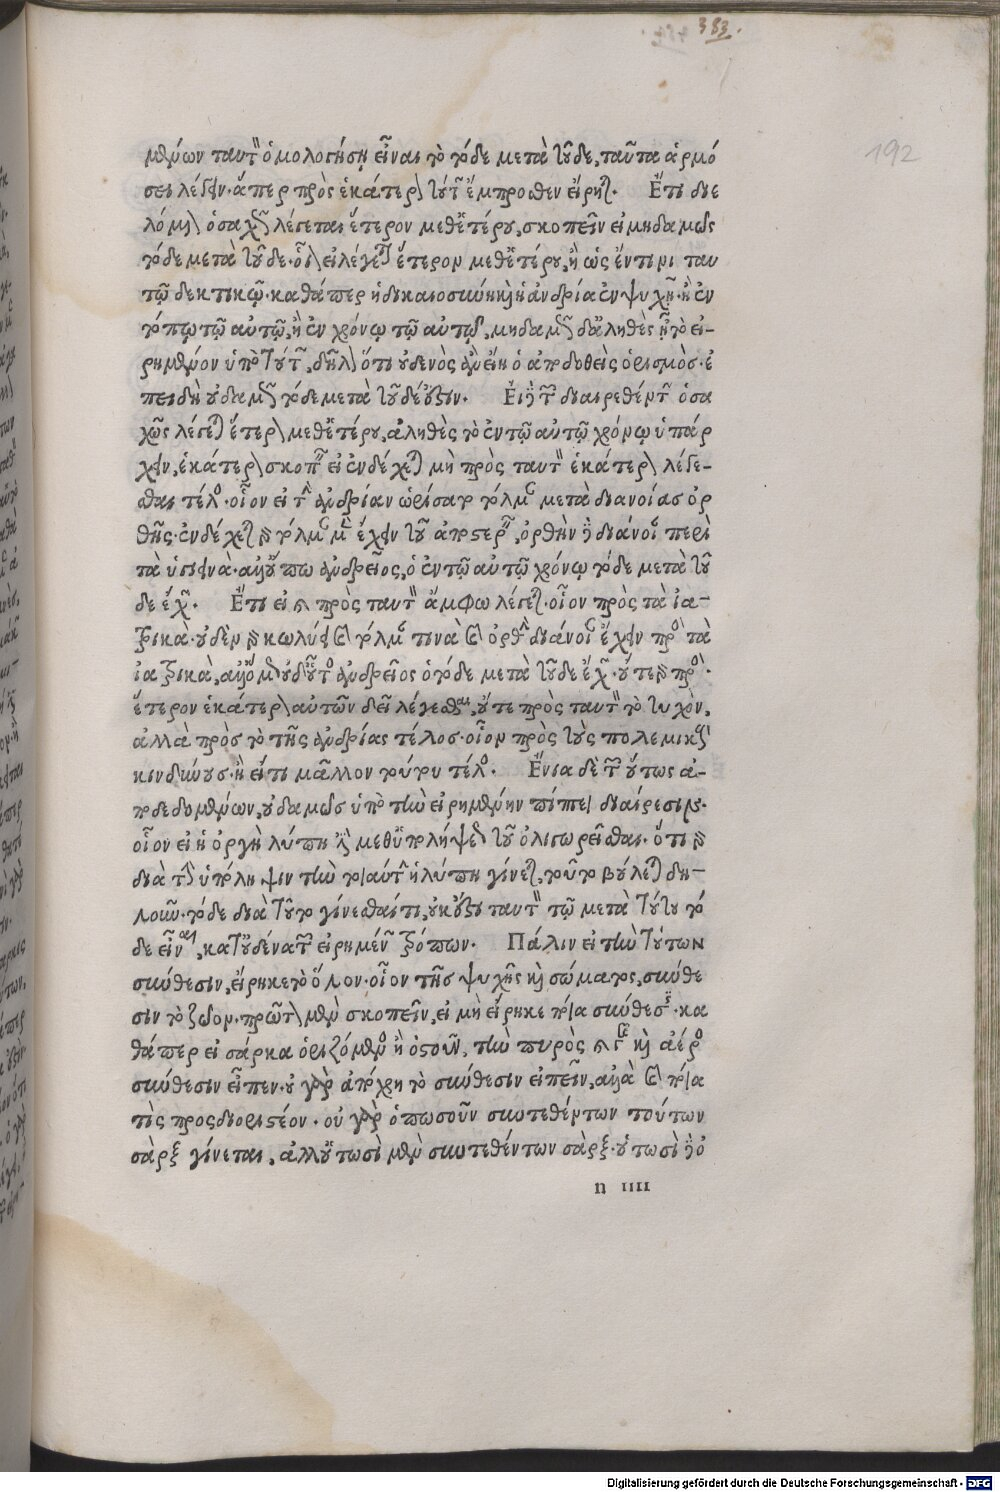 383.
192
μένων ταυτὸ ὁμολογήσῃ εἶναι τὸ τόδε μετὰ τοῦδε, ταῦτα ἁρμό
σει λέγειν. ἅπερ πρὸς ἑκάτερον τούτων ἔμπροσθεν εἴρηται. Ἔτι διε
λόμενον ὁσαχῶς λέγεται ἕτερον μεθ' ἑτέρου, σκοπεῖν εἰ μηδαμῶς
τόδε μετὰ τοῦδε. οἷον εἰ λέγεται ἕτερον μεθ' ἑτέρου, ἢ ὡς ἔν τινι ταυ
τῷ δεκτικῷ. καθάπερ ἡ δικαιοσύνη καὶ ἡ ἀνδρία ἐν ψυχῇ. ἢ ἐν
τόπῳ τῷ αὐτῷ, ἢ ἐν χρόνῳ τῷ αὐτῷ, μηδαμῶς δ' ἀληθὲς ᾖ τὸ εἰ-
ρημένον ὑπὸ τούτων, δῆλον ὅτι οὐδενὸς ἂν εἴη ὁ ἀποδοθεὶς ὁρισμός. ἐ
πειδὴ οὐδαμῶς τόδε μετὰ τοῦδέ ἐστιν. Εἰ δὲ τῶν διαιρεθέντων ὁσα
χῶς λέγεται ἕτερον μεθ' ἑτέρου, ἀληθὲς τὸ ἐν τῷ αὐτῷ χρόνῳ ὑπάρ
χειν, ἑκάτερον σκοπεῖν εἰ ἐνδέχεται μὴ πρὸς ταυτὸ ἑκάτερον λέγε-
σθαι τέλος. οἷον εἰ τὴν ἀνδρίαν ὡρίσατο τόλμαν μετὰ διανοίας ὀρ
θῆς. ἐνδέχεται γὰρ τόλμαν μὲν ἔχειν τοῦ ἀποστερεῖν, ὀρθὴν δὲ διάνοιαν περὶ
τὰ ὑγιεινά. ἀλλ' οὔπω ἀνδρεῖος, ὁ ἐν τῷ αὐτῷ χρόνῳ τόδε μετὰ τοῦ
δε ἔχων. Ἔτι εἰ καὶ πρὸς ταυτὸ ἄμφω λέγεται. οἷον πρὸς τὰ ἰα-
τρικά. οὐδὲν γὰρ κωλύει καὶ τόλμαν τινὰ καὶ ὀρθὴν διάνοιαν ἔχειν πρὸς τὰ
ἰατρικά, ἀλλ' ὅμως οὐδ' οὗτος ἀνδρεῖος ὁ τόδε μετὰ τοῦδε ἔχων. οὔτε γὰρ πρὸς.
ἕτερον ἑκάτερον αὐτῶν δεῖ λέγεσθαι, οὔτε πρὸς ταυτὸ τὸ τυχόν,
ἀλλὰ πρὸς τὸ τῆς ἀνδρίας τέλος. οἷον πρὸς τοὺς πολεμικοὺς
κινδύνους. ἢ εἴ τι μᾶλλον τούτου τέλος. Ἔνια δὲ τῶν οὕτως ἀ-
ποδεδομένων, οὐδαμῶς ὑπὸ τὴν εἰρημένην πίπτει διαίρεσιν.
οἷον εἰ ἡ ὀργὴ λύπη ἐστὶ μεθ' ὑπολήψεως τοῦ ὀλιγωρεῖσθαι. ὅτι γὰρ
διὰ τὴν ὑπόληψιν τὴν τοιαύτην ἡ λύπη γίνεται, τοῦτο βούλεται δη-
λοῦν. τὸ δὲ διὰ τοῦτο γίνεσθαί τι, οὐκ ἔστι ταυτὸ τῷ μετὰ τούτου τό
δε εἶναι, κατ' οὐδένα τῶν εἰρημένων τρόπων. Πάλιν εἰ τὴν τούτων
σύνθεσιν, εἴρηκε τὸ ὅλον. οἷον τῆς ψυχῆς καὶ σώματος, σύνθε
σιν τὸ ζῷον. πρῶτον μὲν σκοπεῖν, εἰ μὴ εἴρηκε ποία σύνθεσις. κα
θάπερ εἰ σάρκα ὁριζόμενος ἢ ὀστοῦν, τὴν πυρὸς καὶ γῆς καὶ ἀέρος
σύνθεσιν εἶπεν. οὐ γὰρ ἀπόχρη τὸ σύνθεσιν εἰπεῖν, ἀλλὰ καὶ ποία
τὶς προσδιοριστέον. οὐ γὰρ ὁπωσοῦν συντεθέντων τούτων
σὰρξ γίνεται, ἀλλ' οὑτωσὶ μὲν συντεθέντων σὰρξ. οὑτωσὶ δὲ ὀ
n IIII
Digitalisierung gefördert durch die Deutsche Forschungsgemeinschaft - DFG